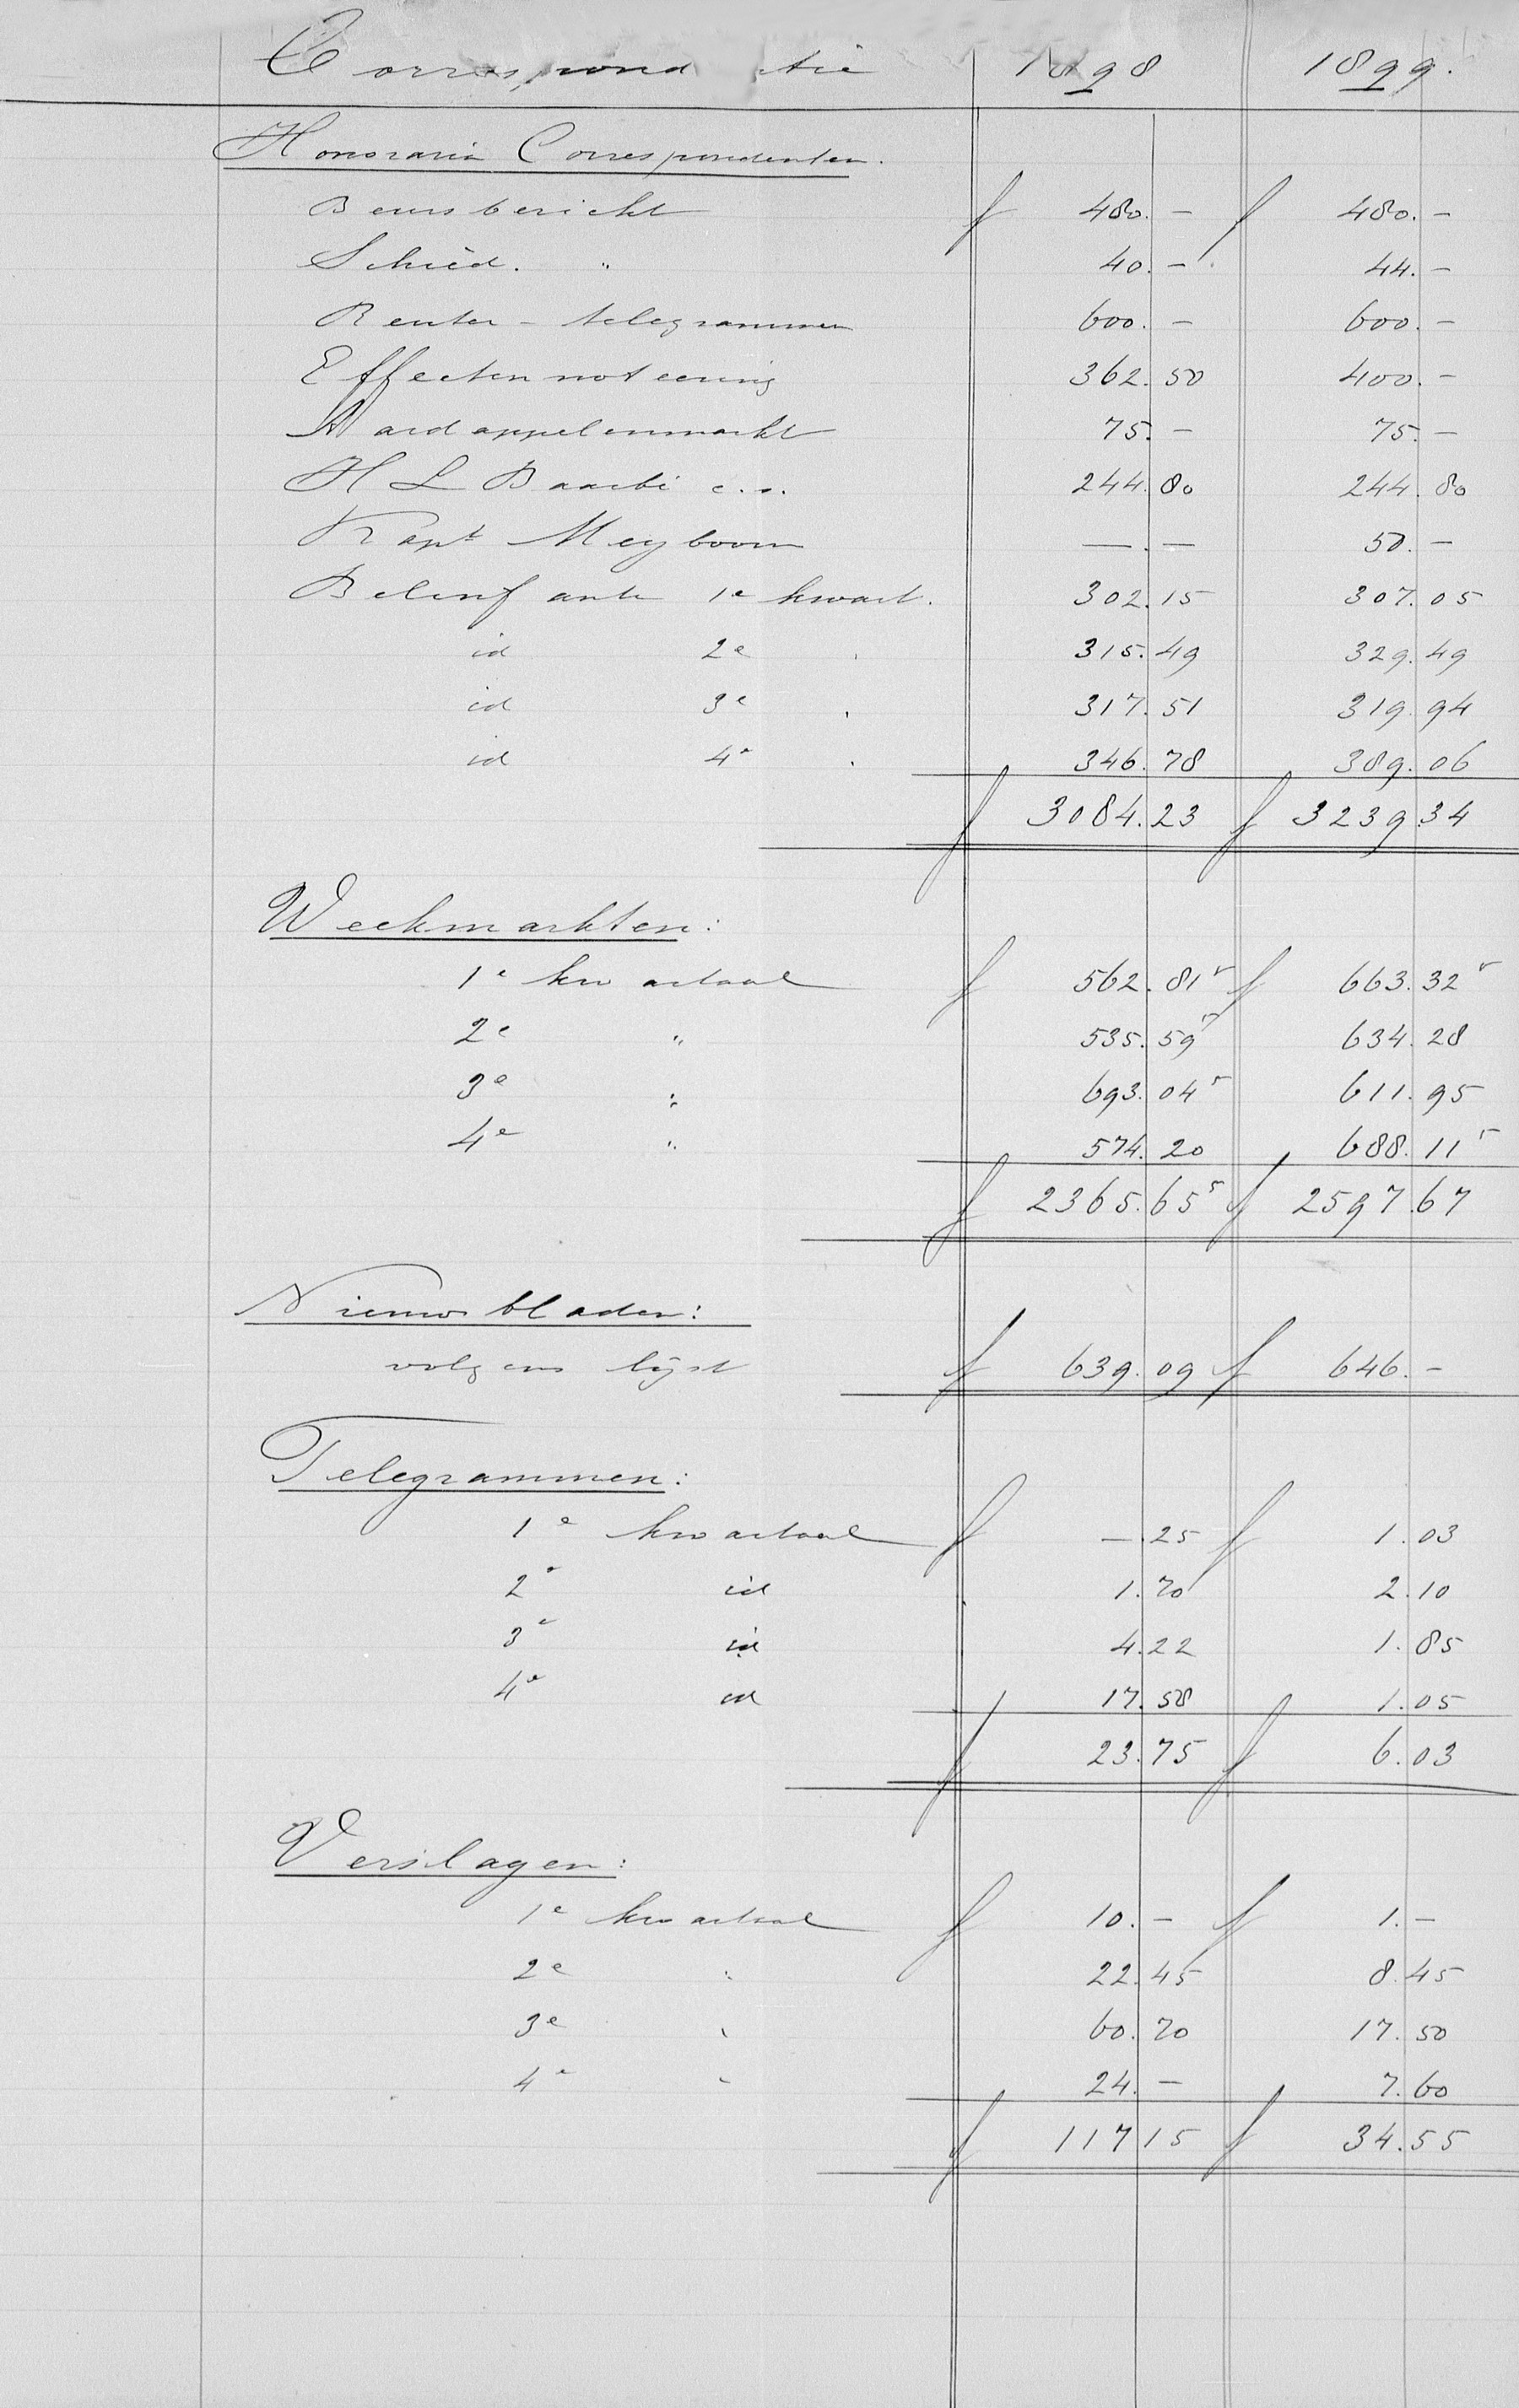 Correspondentie 1898 1899.
Honoraria Correspondenten.
Beursbericht f 480.- f 480.-
Schied. " 40.- 44.-
Reuter-telegrammen 600.- 600.-
Effectennoteering 362.50 400.-
Aardappelenmarkt 75.- 75.-
H L Baarbé c.s. 244.80 244.80
Kapt Meyboom -.- 50.-
Belinfante 1e kwart. 302.15 307.05
id 2e " 315.49 329.49
id 3e " 317.51 319.94
id 4e " 346.78 389.06
f 3084.23 f 3239.34
Weekmarkten:
1e kwartaal f 562.81⁵ f 663.32⁵
2e " 535.59⁵ 634.28
3e " 693.04⁵ 611.95
4e " 574.20 688.11⁵
f 2365.65⁵ f 2597.67
Nieuwsbladen:
volgens lijst f 639.09 f 646.-
Telegrammen:
1e kwartaal f -.25 f 1.03
2e id 1.70 2.10
3e id 4.22 1.85
4e id 17.58 1.05
f 23.75 f 6.03
Verslagen:
1e kwartaal f 10.- f 1.-
2e " 22.45 8.45
3e " 60.70 17.50
4e " 24.- 7.60
f 117.15 f 34.55